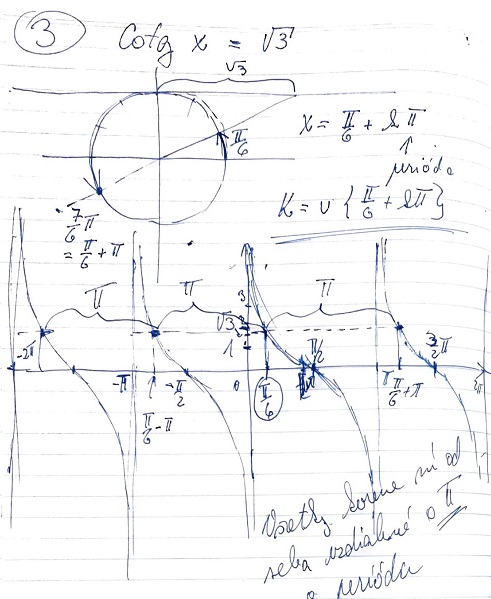 3 Cotg x = √3
√3
π/6
x = π/6 + kπ
↑
perióda
7/6 π
= π/6 + π
K = ∪ {π/6 + kπ}
π π π
3
√3
1
-2π -π -π/2 0 π/6 π/2 π π/6+π 3/2 π 2π
π/6 - π
Všetky korene sú od
seba vzdialené o π
o periódu